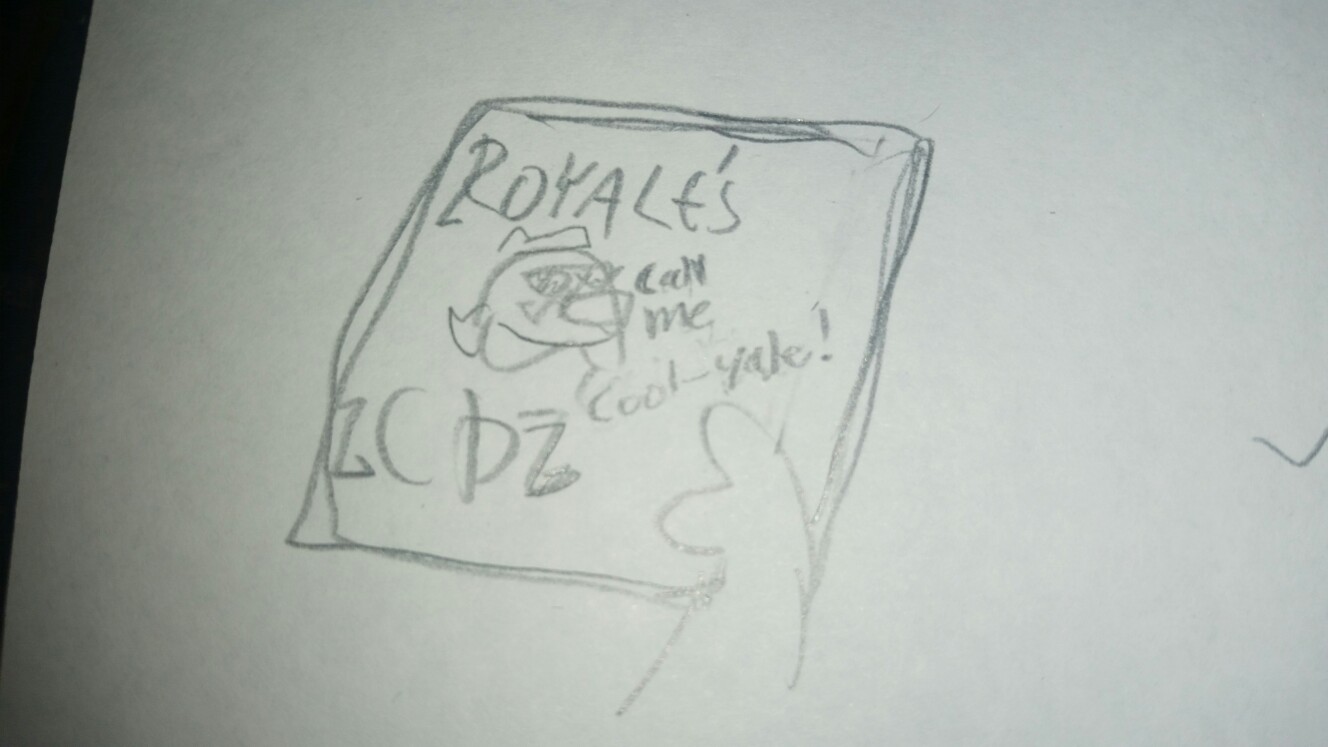 ROYALE's
call
me
cool-yale!